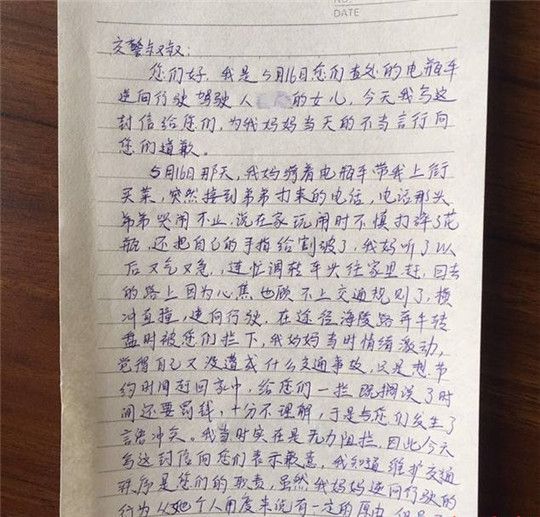 NO.
DATE
交警叔叔：
您们好，我是5月16日您们查处的电瓶车
逆向行驶驾驶人的女儿，今天我写这
封信给您们，为我妈妈当天的不当言行向
您们道歉。
5月16日那天，我妈骑着电瓶车带我上街
买菜，突然接到弟弟打来的电话，电话那头
弟弟哭闹不止，说在家玩闹时不慎打碎了花
瓶，还把自己的手指给割破了，我妈听了以
后又气又急，连忙调转车头往家里赶，回去
的路上因为心焦也顾不上交通规则了，横
冲直撞，逆向行驶，在途径海陵路弃车转
盘时被您们拦下，我妈妈当时情绪激动，
觉得自己又没造成什么交通事故，只是想节
约时间赶回家中，给您们一拦既搁误了时
间还要罚钱，十分不理解，于是与您们发生了
言语冲突。我当时实在是无力阻拦，因此今天
写这封信向您们表示歉意，我知道维护交通
秩序是您们的职责，虽然我妈妈逆向行驶的
行为从她个人角度来说有一定的原由，但是